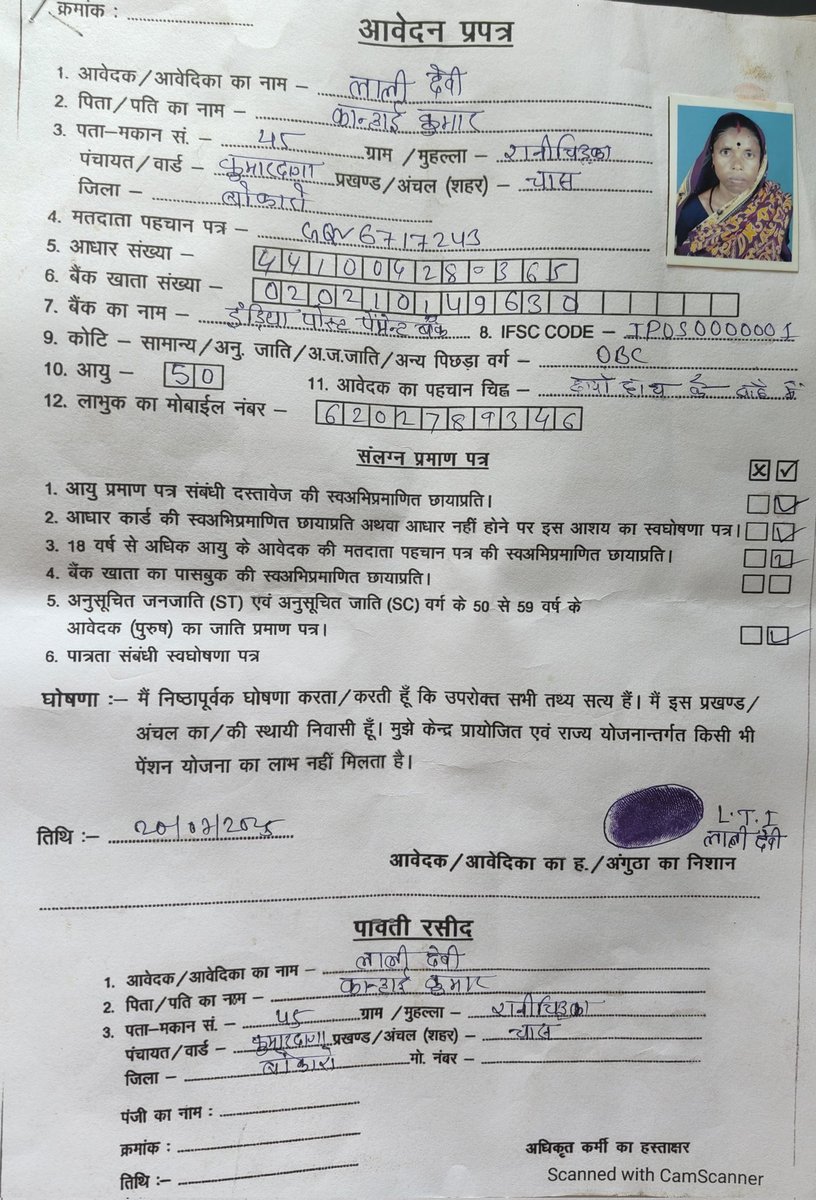 क्रमांक :
आवेदन प्रपत्र
1. आवेदक/आवेदिका का नाम – लाली देवी
2. पिता/पति का नाम – कान्हाई कुमार
3. पता–मकान सं. – 45 ग्राम/मुहल्ला – रानीचिड़का
पंचायत/वार्ड – कुमारदागा प्रखण्ड/अंचल (शहर) – चास
जिला – बोकारो
4. मतदाता पहचान पत्र – 6717243
5. आधार संख्या – 441004280365
6. बैंक खाता संख्या – 020210149630
7. बैंक का नाम – इंडिया पोस्ट पेमेन्ट बैंक 8. IFSC CODE – IPOS0000001
9. कोटि – सामान्य/अनु. जाति/अ.ज.जाति/अन्य पिछड़ा वर्ग – OBC
10. आयु – 50 11. आवेदक का पहचान चिह्न – हाथ के में
12. लाभुक का मोबाईल नंबर – 6202789346
संलग्न प्रमाण पत्र
1. आयु प्रमाण पत्र संबंधी दस्तावेज की स्वअभिप्रमाणित छायाप्रति।
2. आधार कार्ड की स्वअभिप्रमाणित छायाप्रति अथवा आधार नहीं होने पर इस आशय का स्वघोषणा पत्र।
3. 18 वर्ष से अधिक आयु के आवेदक की मतदाता पहचान पत्र की स्वअभिप्रमाणित छायाप्रति।
4. बैंक खाता का पासबुक की स्वअभिप्रमाणित छायाप्रति।
5. अनुसूचित जनजाति (ST) एवं अनुसूचित जाति (SC) वर्ग के 50 से 59 वर्ष के
आवेदक (पुरुष) का जाति प्रमाण पत्र।
6. पात्रता संबंधी स्वघोषणा पत्र
घोषणा :– मैं निष्ठापूर्वक घोषणा करता/करती हूँ कि उपरोक्त सभी तथ्य सत्य हैं। मैं इस प्रखण्ड/
अंचल का/की स्थायी निवासी हूँ। मुझे केन्द्र प्रायोजित एवं राज्य योजनान्तर्गत किसी भी
पेंशन योजना का लाभ नहीं मिलता है।
L.T.I
तिथि :– 20/07/2025 लाली देवी
आवेदक/आवेदिका का ह./अंगुठा का निशान
पावती रसीद
1. आवेदक/आवेदिका का नाम – लाली देवी
2. पिता/पति का नाम – कान्हाई कुमार
3. पता–मकान सं. – 45 ग्राम/मुहल्ला – रानीचिड़का
पंचायत/वार्ड – कुमारदागा प्रखण्ड/अंचल (शहर) – चास
जिला – बोकारो मो. नंबर –
पंजी का नाम :
क्रमांक :
अधिकृत कर्मी का हस्ताक्षर
तिथि :
Scanned with CamScanner